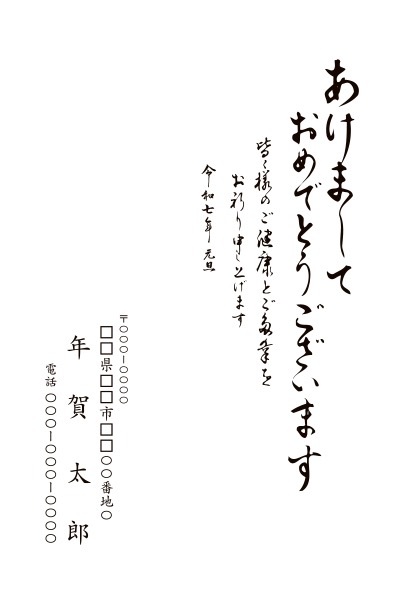 あけまして
おめでとうございます
皆々様のご健康とご多幸を
お祈り申し上げます
令和七年 元旦
〒○○○-○○○○
□□県□□市□□○○番地○
年賀太郎
電話 ○○○-○○○-○○○○